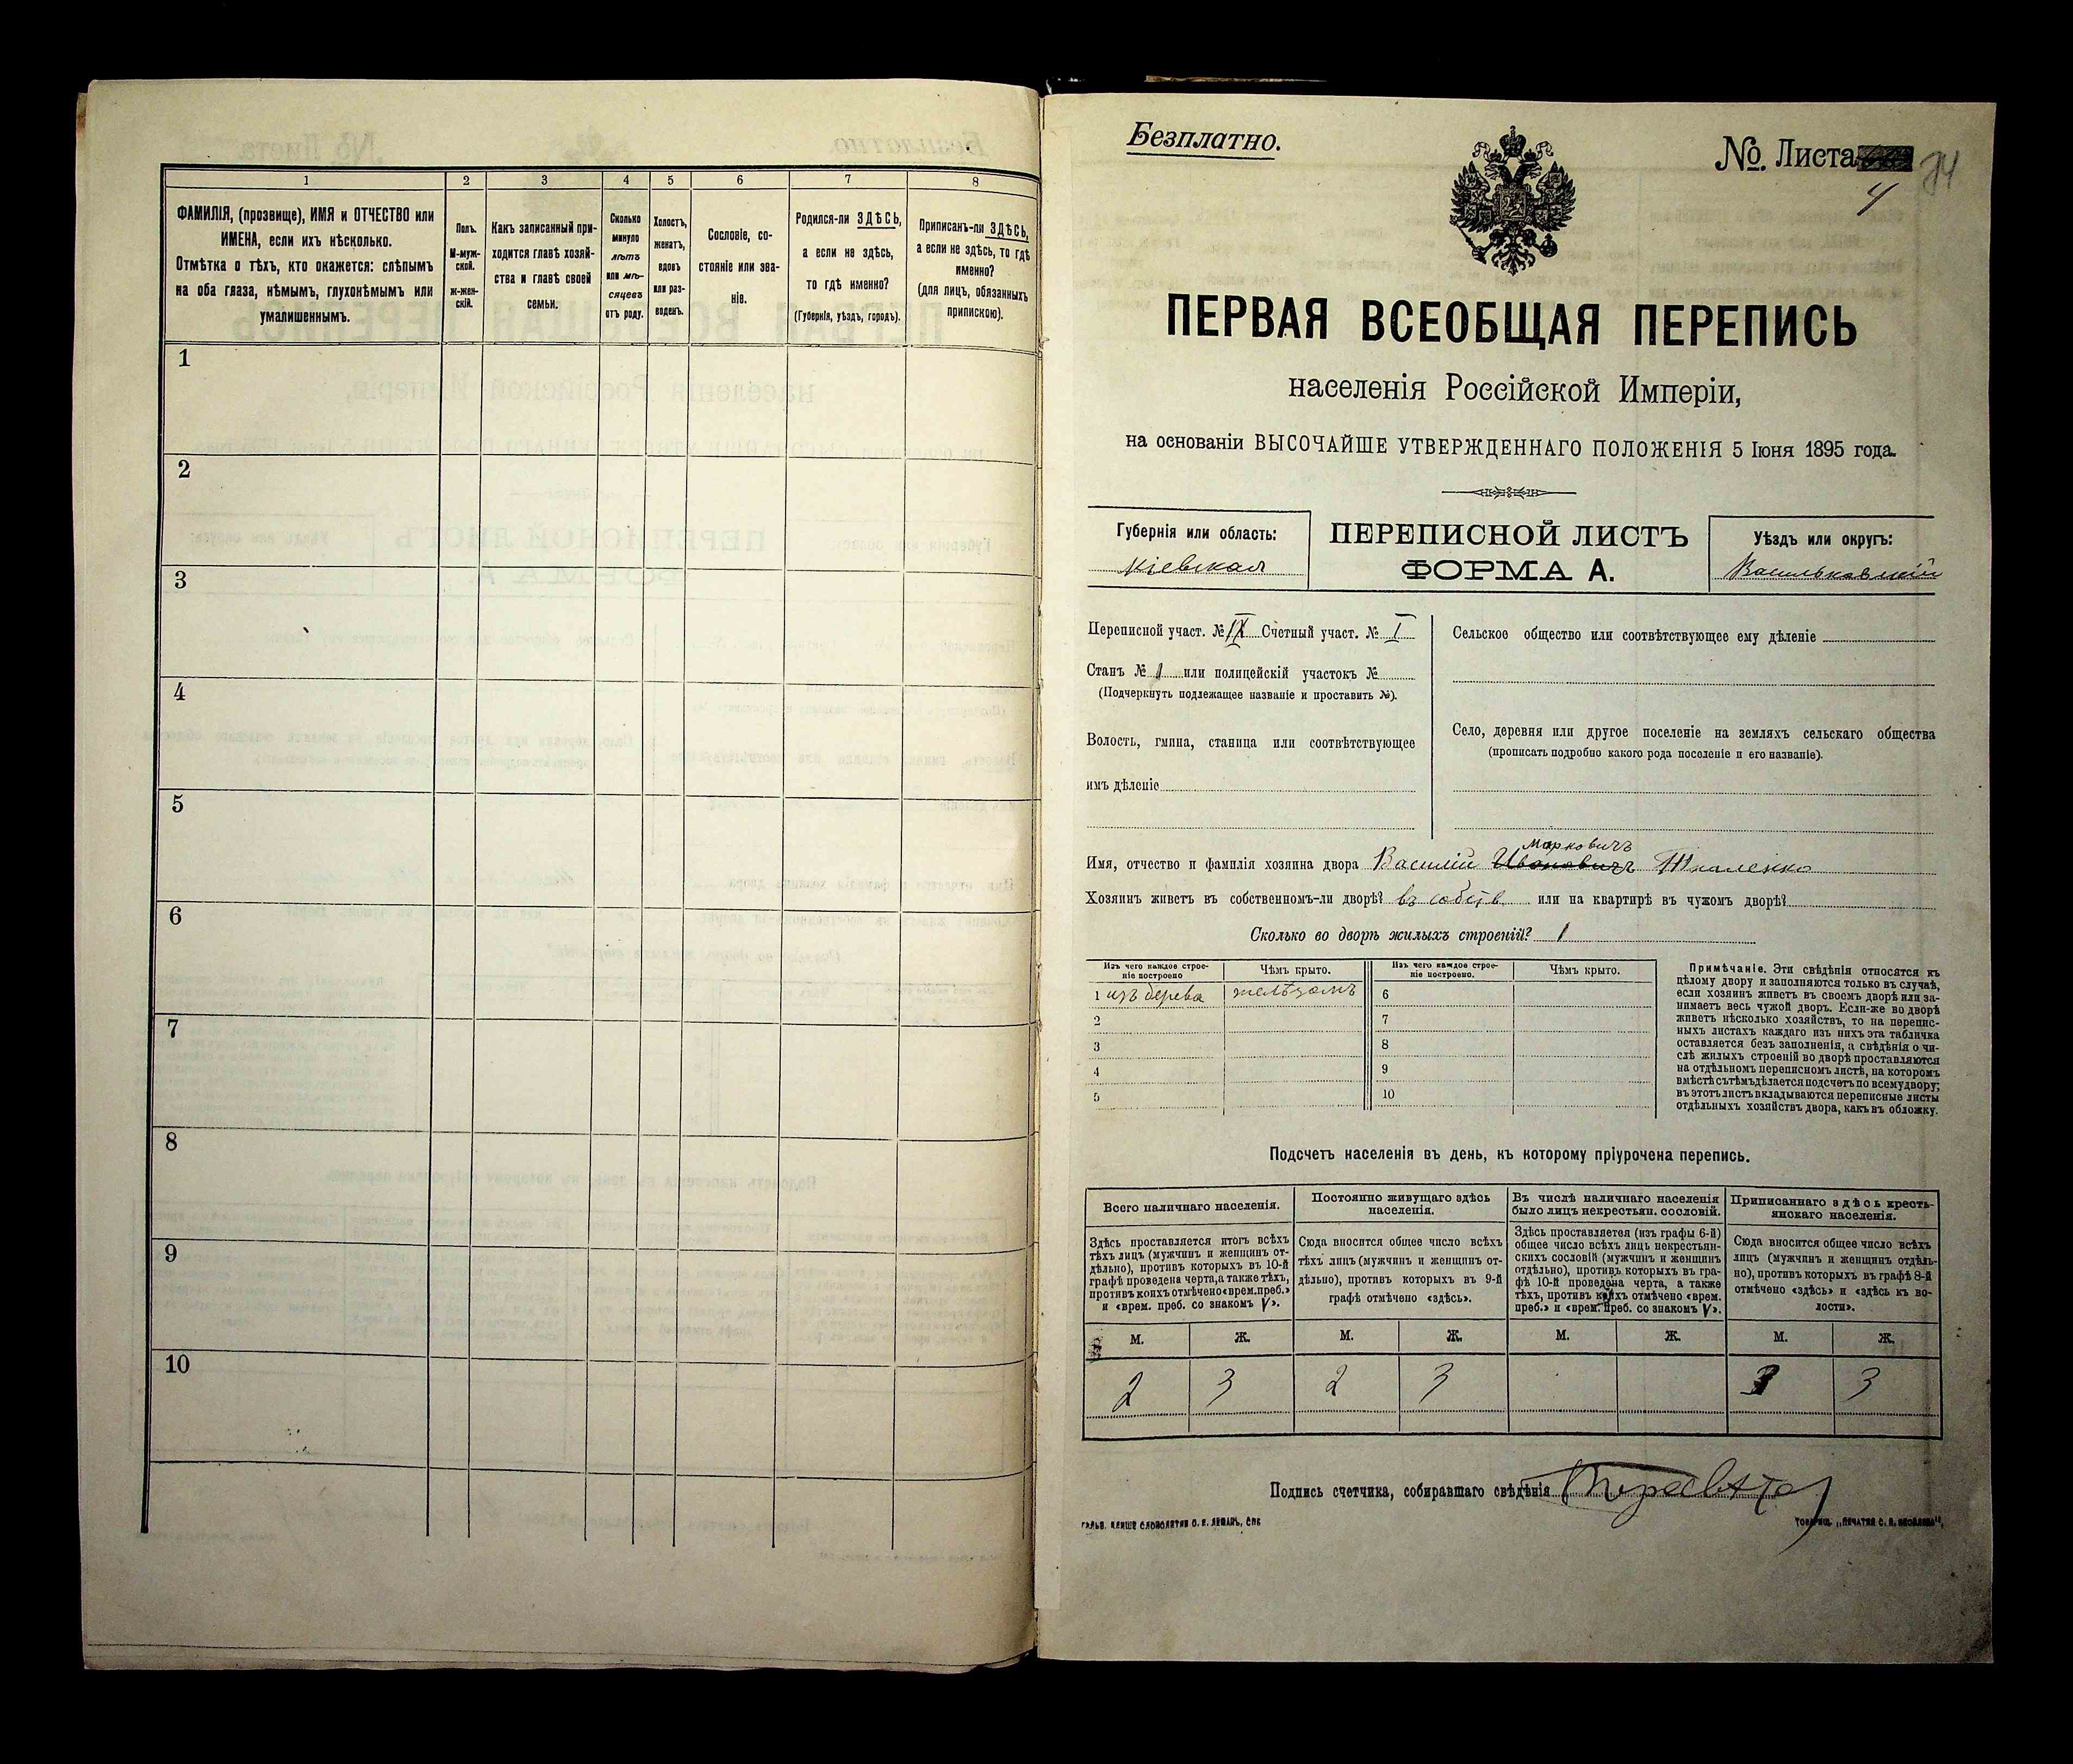 1 2 3 4 5 6 7 8
ФАМИЛІЯ, (прозвище), ИМЯ и ОТЧЕСТВО или
ИМЕНА, если ихъ нѣсколько.
Отмѣтка о тѣхъ, кто окажется: слѣпымъ
на оба глаза, нѣмымъ, глухонѣмымъ или
умалишеннымъ.
Полъ.
М-муж-
ской.
ж-жен-
скій.
Какъ записанный при-
ходится главѣ хозяй-
ства и главѣ своей
семьи.
Сколько
минуло
лѣтъ
или мѣ-
сяцевъ
отъ роду.
Холостъ,
женатъ,
вдовъ
или раз-
веденъ.
Сословіе, со-
стояніе или зва-
ніе.
Родился-ли ЗДѢСЬ,
а если не здѣсь,
то гдѣ именно?
(Губернія, уѣздъ, городъ).
Приписанъ-ли ЗДѢСЬ,
а если не здѣсь, то гдѣ
именно?
(для лицъ, обязанныхъ
припискою).
1
2
3
4
5
6
7
8
9
10
Безплатно.
№ Листа
4
ПЕРВАЯ ВСЕОБЩАЯ ПЕРЕПИСЬ
населенія Россійской Имперіи,
на основаніи ВЫСОЧАЙШЕ УТВЕРЖДЕННАГО ПОЛОЖЕНІЯ 5 Іюня 1895 года.
Губернія или область:
Кіевская
ПЕРЕПИСНОЙ ЛИСТЪ
ФОРМА А.
Уѣздъ или округъ:
Васильковскій
Переписной участ. № IX Счетный участ. № I
Станъ № 1 или полицейскій участокъ №
(Подчеркнуть подлежащее названіе и проставить №).
Волость, гмина, станица или соотвѣтствующее
имъ дѣленіе
Сельское общество или соотвѣтствующее ему дѣленіе
Село, деревня или другое поселеніе на земляхъ сельскаго общества
(прописать подробно какого рода поселеніе и его названіе).
Марковичъ
Имя, отчество и фамилія хозяина двора Василій Ивановичъ
Хозяинъ живетъ въ собственномъ-ли дворѣ? въ собств или на квартирѣ въ чужомъ дворѣ?
Сколько во дворѣ жилыхъ строеній? 1
Изъ чего каждое строе-
ніе построено
Чѣмъ крыто.
Изъ чего каждое строе-
ніе построено.
Чѣмъ крыто.
1 изъ дерева желѣзомъ 6
2 7
3 8
4 9
5 10
Примѣчаніе. Эти свѣдѣнія относятся къ
цѣлому двору и заполняются только въ случаѣ,
если хозяинъ живетъ въ своемъ дворѣ или за-
нимаетъ весь чужой дворъ. Если-же во дворѣ
живетъ нѣсколько хозяйствъ, то на перепис-
ныхъ листахъ каждаго изъ нихъ эта табличка
оставляется безъ заполненія, а свѣдѣнія о чи-
слѣ жилыхъ строеній во дворѣ проставляются
на отдѣльномъ переписномъ листѣ, на которомъ
вмѣстѣ съ тѣмъ дѣлается подсчетъ по всему двору;
въ этотъ листъ вкладываются переписные листы
отдѣльныхъ хозяйствъ двора, какъ въ обложку.
Подсчетъ населенія въ день, къ которому пріурочена перепись.
Всего наличнаго населенія.
Постоянно живущаго здѣсь
населенія.
Въ числѣ наличнаго населенія
было лицъ некрестьян. сословій.
Приписаннаго здѣсь кресть-
янскаго населенія.
Здѣсь проставляется итогъ всѣхъ
тѣхъ лицъ (мужчинъ и женщинъ от-
дѣльно), противъ которыхъ въ 10-й
графѣ проведена черта, а также тѣхъ,
противъ коихъ отмѣчено «врем. преб.»
и «врем. преб. со знакомъ V».
Сюда вносится общее число всѣхъ
тѣхъ лицъ (мужчинъ и женщинъ от-
дѣльно), противъ которыхъ въ 9-й
графѣ отмѣчено «здѣсь».
Здѣсь проставляется (изъ графы 6-й)
общее число всѣхъ лицъ некрестьян-
скихъ сословій (мужчинъ и женщинъ
отдѣльно), противъ которыхъ въ гра-
фѣ 10-й проведена черта, а также
тѣхъ, противъ коихъ отмѣчено «врем.
преб.» и «врем. преб. со знакомъ V».
Сюда вносится общее число всѣхъ
лицъ (мужчинъ и женщинъ отдѣль-
но), противъ которыхъ въ графѣ 8-й
отмѣчено «здѣсь» и «здѣсь къ во-
лости».
М. Ж. М. Ж. М. Ж. М. Ж.
2 3 2 3 3 3
Подпись счетчика, собиравшаго свѣдѣнія